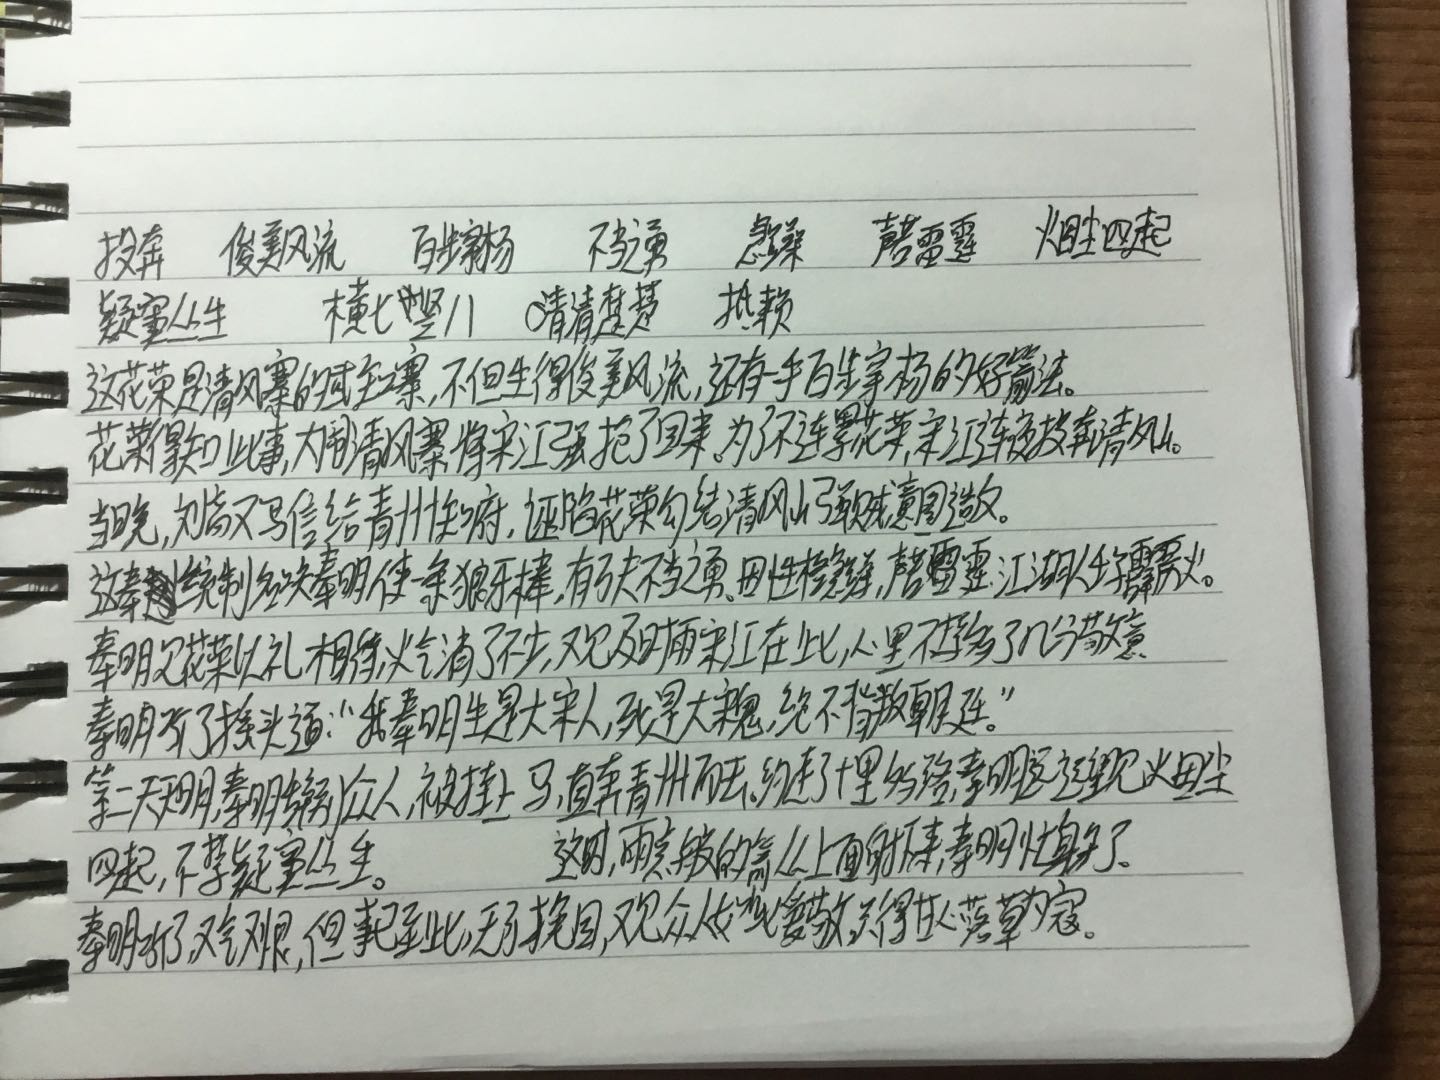 投奔 俊美风流 百步穿杨 不当之勇 急躁 声若雷霆 烟尘四起
疑窦丛生 横七竖八 清清楚楚 抵赖
这花荣是清风寨的武知寨,不但生得俊美风流,还有一手百步穿杨的好箭法。
花荣得知此事,大闹清风寨,将宋江强抢了回来。为了不连累花荣,宋江连夜投奔清风山。
当晚,刘高又写信给青州知府,诬陷花荣勾结清风山强贼,意图造反。
这秦统制名唤秦明,使一条狼牙棒,有万夫不当之勇。因性格急躁,声若雷霆,江湖人称霹雳火。
秦明见花荣以礼相待,火气消了不少,又见及时雨宋江在此,心里不禁多了几分敬意
秦明听了摇头道:“我秦明生是大宋人,死是大宋鬼,绝不背叛朝廷。”
第二天天明,秦明辞别众人,披挂上马,直奔青州而去。约走了十里的路,秦明远远望见烟尘
四起,不禁疑窦丛生。 这时,雨点般的箭从上面射下来,秦明忙躲了。
秦明听了,又气又恨,但事已至此,无可挽回,又见众人如此爱敬,只得甘心落草为寇。